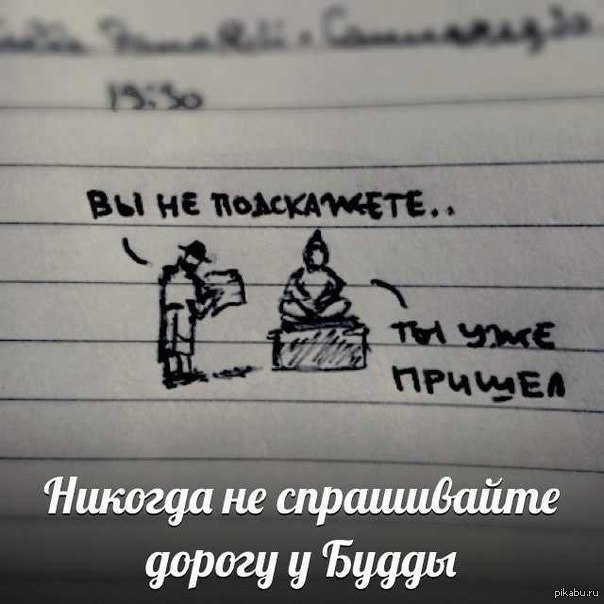 19:30
ВЫ НЕ ПОДСКАЖЕТЕ..
ТЫ УЖЕ
ПРИШЕЛ
Никогда не спрашивайте
дорогу у Будды
pikabu.ru